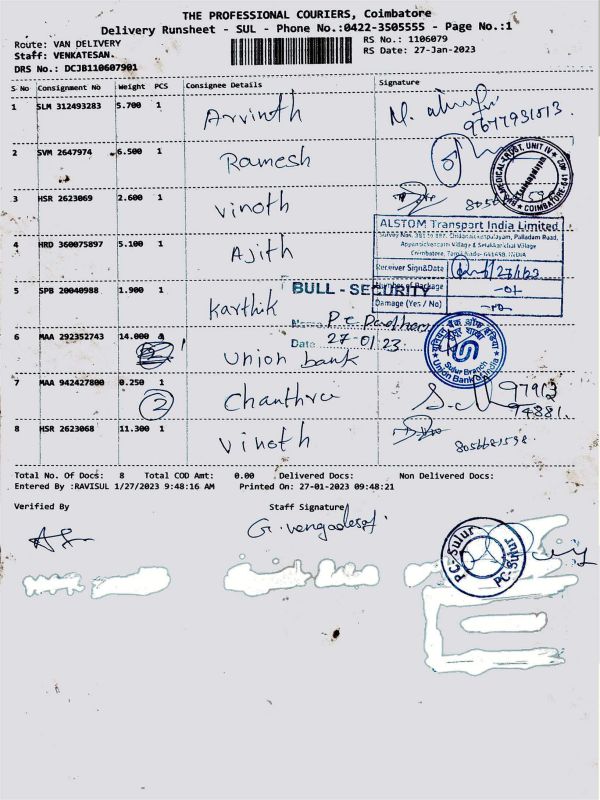 THE PROFESSIONAL COURIERS, Coimbatore
Delivery Runsheet - SUL - Phone No.:0422-3505555 - Page No.:1
Route: VAN DELIVERY RS No.: 1106079
Staff: VENKATESAN. RS Date: 27-Jan-2023
DRS No.: DCJB110607901
S No Consignment No Weight PCS Consignee Details Signature
1 SLM 312493283 5.700 1 Arvinth
9677931013.
2 SVM 2647974 6.500 1 Ramesh
3 HSR 2623069 2.600 1 Vinoth
ALSTOM Transport India Limited
Coimbatore, Tamil Nadu
4 HRD 360075897 5.100 1 Ajith
Receiver Sign&Date 27/1/23
Number of Package -01
Damage (Yes / No) -no
5 SPB 20040988 1.900 1 Karthik
BULL - SECURITY
Name
Date 27-01-23
6 MAA 292352743 14.000 Union bank
यूनियन बैंक ऑफ इंडिया
Sulur Branch
Union Bank of India
7 MAA 942427800 0.250 1 Chanthru 97913
2 94881.
8 HSR 2623068 11.300 1 Vinoth 8056681598.
Total No. Of Docs: 8 Total COD Amt: 0.00 Delivered Docs: Non Delivered Docs:
Entered By :RAVISUL 1/27/2023 9:48:16 AM Printed On: 27-01-2023 09:48:21
Verified By Staff Signature
PC-Sulur
PC-Sulur